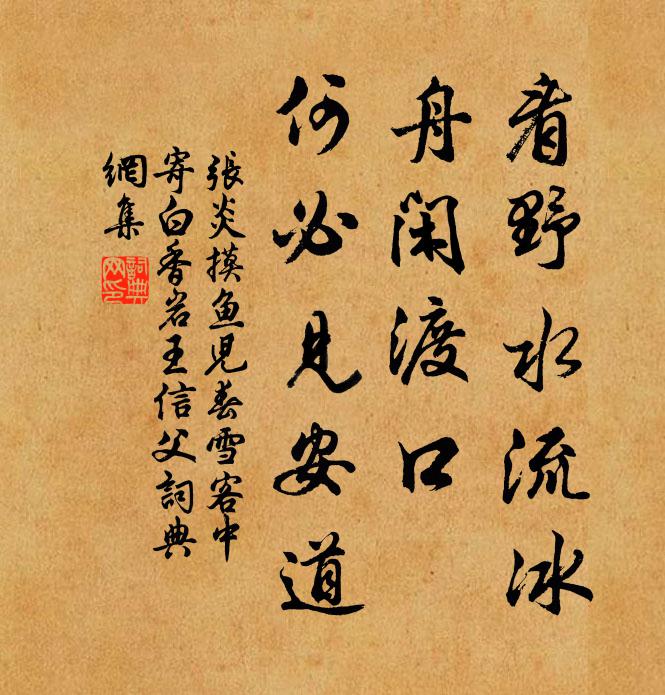 看野水流冰
舟閑渡口
何必見安道
張炎摸魚兒春雪客中
寄白香岩王信父詞典
網集
詞典
网印